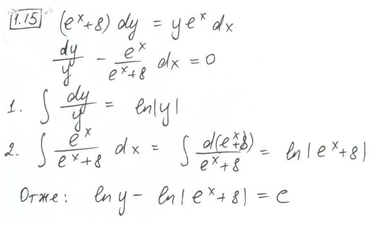 1.15 (eˣ+8) dy = y eˣ dx
dy/y - eˣ/(eˣ+8) dx = 0
1. ∫ dy/y = ln|y|
2. ∫ eˣ/(eˣ+8) dx = ∫ d(eˣ+8)/(eˣ+8) = ln|eˣ+8|
Отже: ln y - ln|eˣ+8| = C